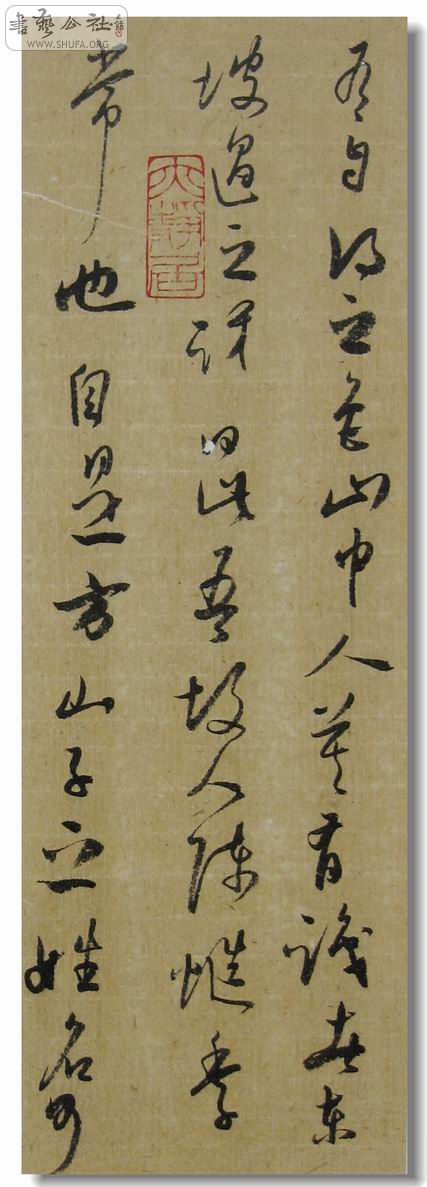 書藝公社
WWW.SHUFA.ORG
有自得之色山中人莫有識者東
坡遇之訝曰此吾故人陳慥季
常也自是方山子之姓名可